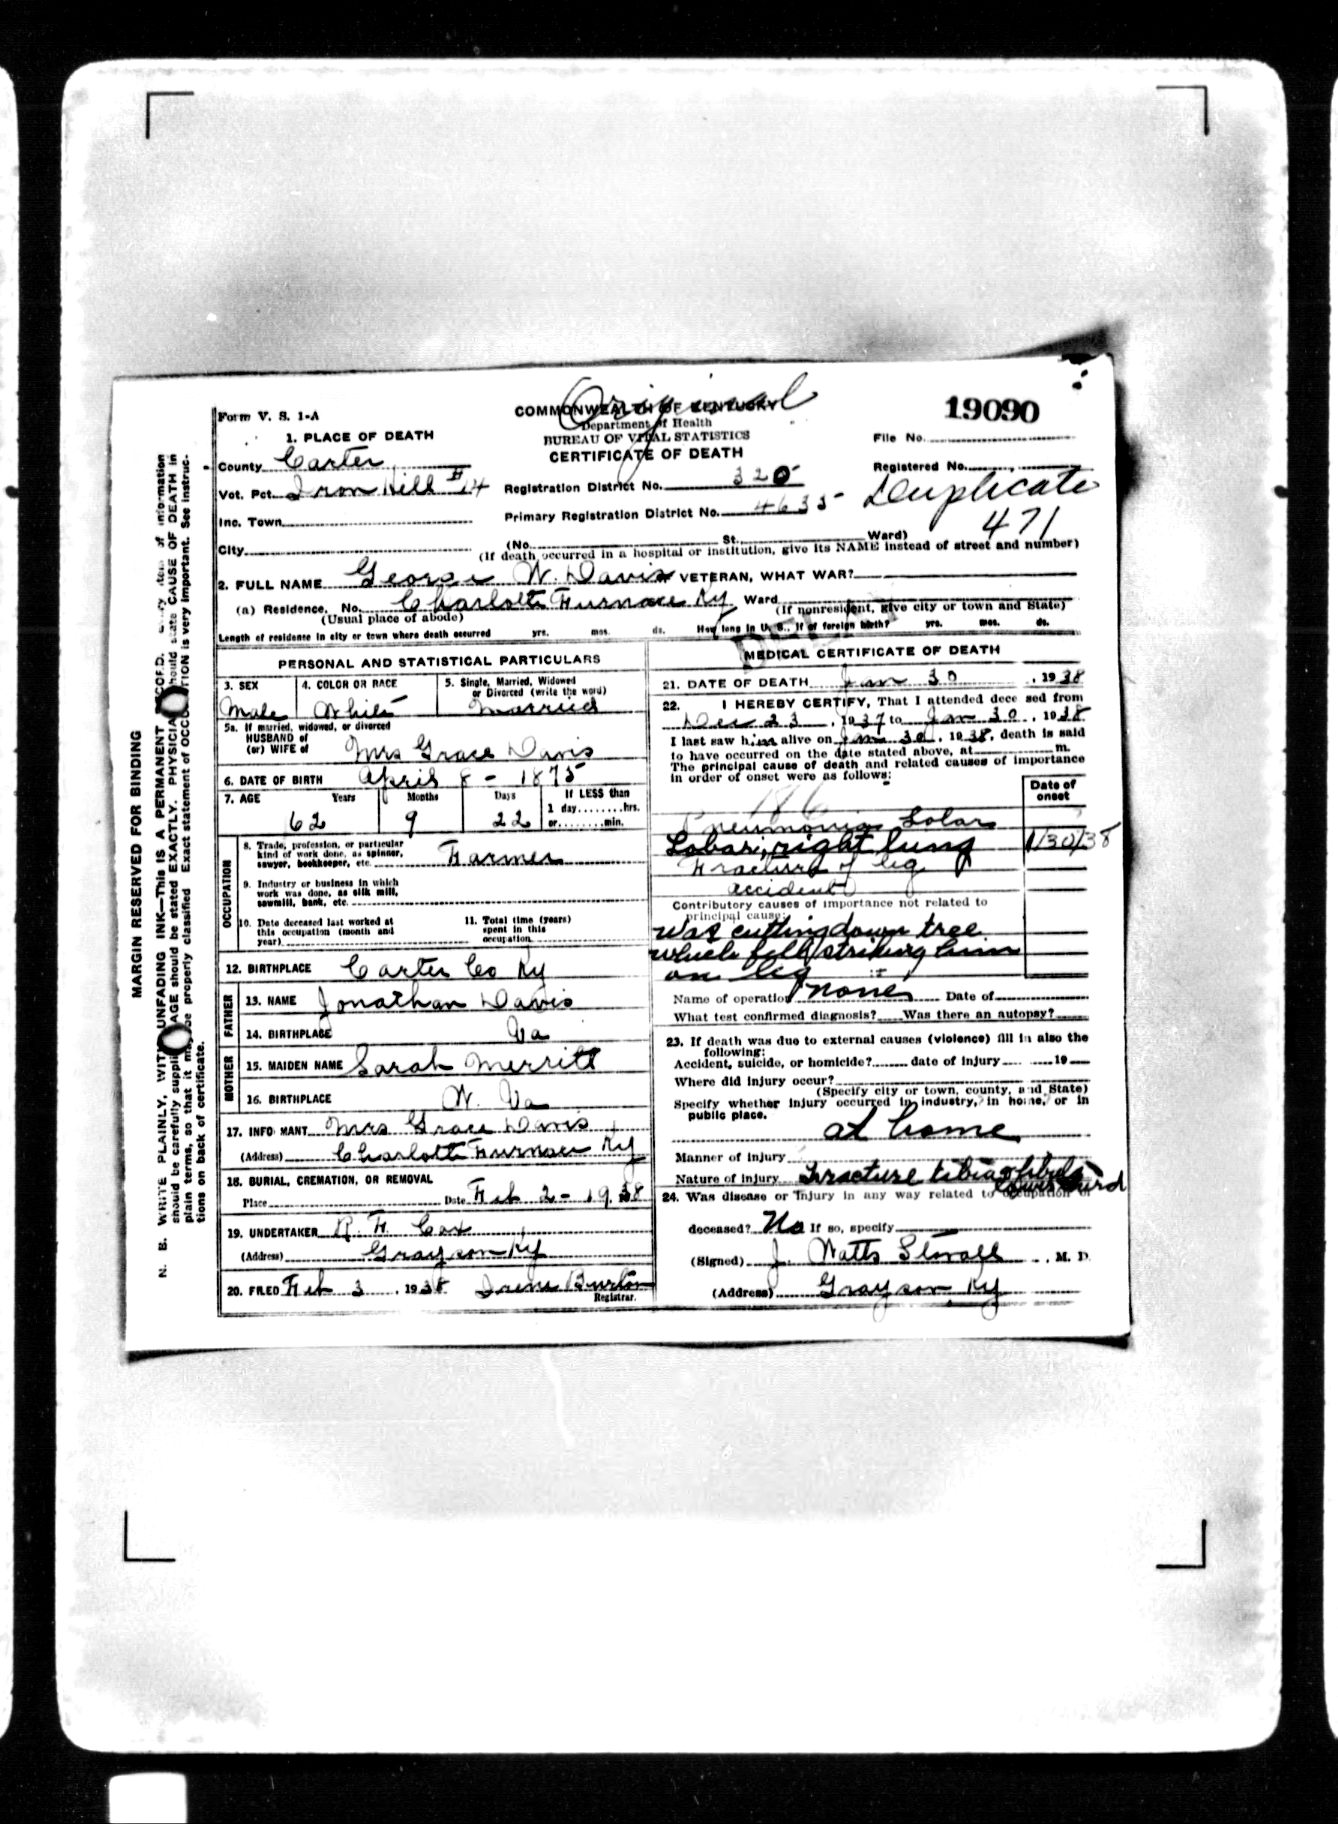 Original
Form V. S. 1-A
COMMONWEALTH OF KENTUCKY
19090
Department of Health
1. PLACE OF DEATH
BUREAU OF VITAL STATISTICS
File No.
County Carter
CERTIFICATE OF DEATH
Registered No.
Vot. Pct. Iron Hill #14
Registration District No. 320
Duplicate
Inc. Town
Primary Registration District No. 4635
471
City
(No. St. Ward)
(If death occurred in a hospital or institution, give its NAME instead of street and number)
2. FULL NAME George W. Davis VETERAN, WHAT WAR?
(a) Residence. No. Charlotte Furnace Ky Ward
(Usual place of abode)
(If nonresident, give city or town and State)
Length of residence in city or town where death occurred yrs. mos. ds. How long in U. S., if of foreign birth? yrs. mos. ds.
PERSONAL AND STATISTICAL PARTICULARS
3. SEX
Male
4. COLOR OR RACE
White
5. Single, Married, Widowed
or Divorced (write the word)
Married
5a. If married, widowed, or divorced
HUSBAND of
(or) WIFE of Mrs Grace Davis
6. DATE OF BIRTH April 8 - 1875
7. AGE Years Months Days If LESS than
1 day........hrs.
or........min.
62 9 22
OCCUPATION
8. Trade, profession, or particular
kind of work done, as spinner,
sawyer, bookkeeper, etc. Farmer
9. Industry or business in which
work was done, as silk mill,
sawmill, bank, etc.
10. Date deceased last worked at
this occupation (month and
year)
11. Total time (years)
spent in this
occupation
12. BIRTHPLACE Carter Co Ky
FATHER
13. NAME Jonathan Davis
14. BIRTHPLACE Va
MOTHER
15. MAIDEN NAME Sarah Merritt
16. BIRTHPLACE W. Va
17. INFORMANT Mrs Grace Davis
(Address) Charlotte Furnace Ky
18. BURIAL, CREMATION, OR REMOVAL
Place Date Feb 2 - 1938
19. UNDERTAKER R. F. Cox
(Address) Grayson Ky
20. FILED Feb 3, 1938 Irene Burton
Registrar.
MEDICAL CERTIFICATE OF DEATH
21. DATE OF DEATH Jan 30, 1938
22. I HEREBY CERTIFY, That I attended deceased from
Dec 23, 1937 to Jan 30, 1938
I last saw him alive on Jan 30, 1938, death is said
to have occurred on the date stated above, at m.
The principal cause of death and related causes of importance
in order of onset were as follows:
Date of
onset
186
Pneumonia Lobar
Lobar, right lung 1/30/38
Fracture of leg
accident
Contributory causes of importance not related to
principal cause:
Was cutting down tree
which fell striking him
on leg
Name of operation none Date of
What test confirmed diagnosis? Was there an autopsy?
23. If death was due to external causes (violence) fill in also the
following:
Accident, suicide, or homicide? date of injury 19
Where did injury occur?
(Specify city or town, county, and State)
Specify whether injury occurred in industry, in home, or in
public place.
at home
Manner of injury
Nature of injury Fracture tibia & fibula
lower third
24. Was disease or injury in any way related to occupation of
deceased? No If so, specify
(Signed) J. Watts Stovall, M. D.
(Address) Grayson Ky
MARGIN RESERVED FOR BINDING
N. B. WRITE PLAINLY, WITH UNFADING INK—THIS IS A PERMANENT RECORD. Every item of information
should be carefully supplied. AGE should be stated EXACTLY. PHYSICIANS should state CAUSE OF DEATH in
plain terms, so that it may be properly classified. Exact statement of OCCUPATION is very important. See instruc-
tions on back of certificate.